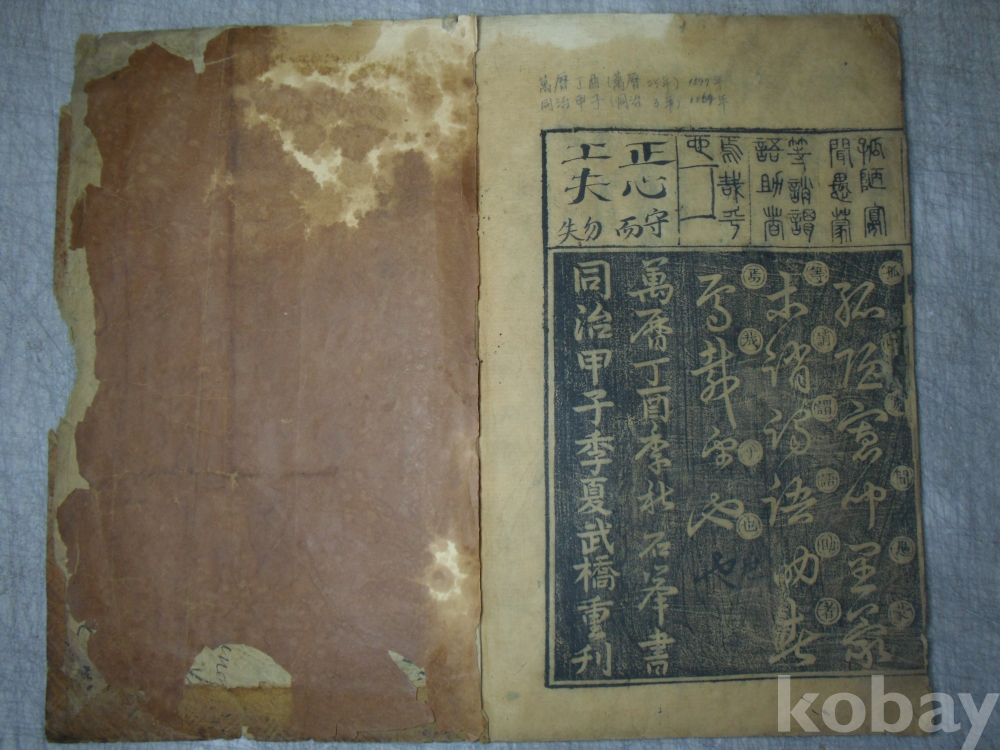 萬曆丁酉(萬曆 25年) 1597年
同治甲子(同治 3年) 1864年
孤陋寡
聞愚蒙
等誚謂
語助者
焉哉乎
也
正心
工夫
守而勿失
孤陋寡聞愚蒙
孤陋寡聞愚蒙
等誚謂語助者
等誚謂語助者
焉哉乎也
焉哉乎也
萬曆丁酉季秋石峯書
同治甲子季夏武橋重刊
kobay